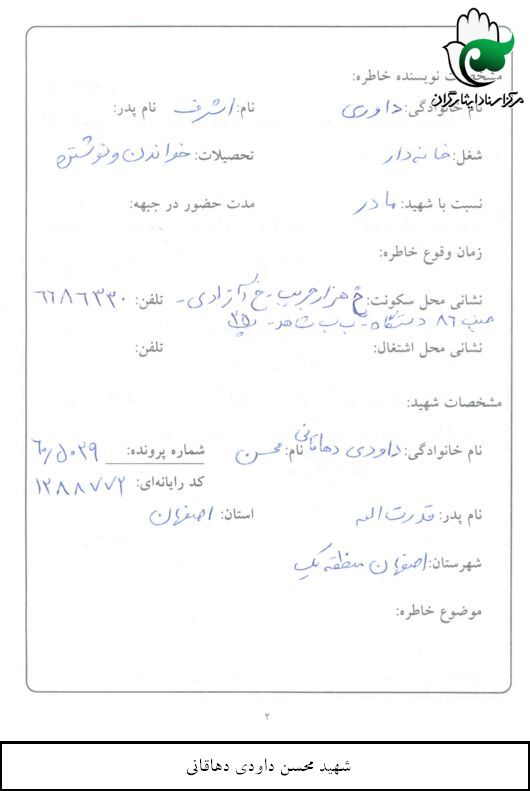 مرکز اسناد ایثارگران
مشخصات نویسنده خاطره:
نام خانوادگی: داوری نام: اشرف نام پدر:
شغل: خانه دار تحصیلات: خواندن و نوشتن
نسبت با شهید: مادر مدت حضور در جبهه:
زمان وقوع خاطره:
نشانی محل سکونت: خ هزار جریب - خ آزادی - تلفن: ۶۶۸۶۳۳۰
۸۶ دستگاه - شاهد - ۳۵
نشانی محل اشتغال: تلفن:
مشخصات شهید:
نام خانوادگی: داودی دهاقانی نام: محسن شماره پرونده: ۶۰/۵۰۲۹
کد رایانه‌ای: ۱۲۸۸۷۷۲
نام پدر: قدرت اله استان: اصفهان
شهرستان: اصفهان منطقه یک
موضوع خاطره:
۲
شهید محسن داودی دهاقانی